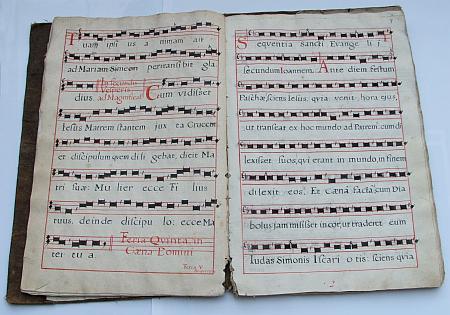 Tuam ipsius animam ait
ad Mariam Simeon pertransibit gla
dius. In secundis Vesperis ad Magnificat Cum vidisset
Iesus Matrem stantem juxta Crucem
et discipulum quem diligebat, dicit Ma
tri suæ: Mulier ecce Filius
tuus, deinde discipulo: ecce Ma
ter tua. Feria Quinta, in Cœna Domini
Feria V
Sequentia sancti Evangelij
secundum Ioannem. Ante diem festum
Paschæ, sciens Iesus, quia venit hora ejus,
ut transeat ex hoc mundo ad Patrem: cum di
lexisset suos, qui erant in mundo, in finem
dilexit eos. Et Cœna facta, cum Dia
bolus jam misisset in cor, ut traderet eum
Iudas Simonis Iscariotis: sciens quia